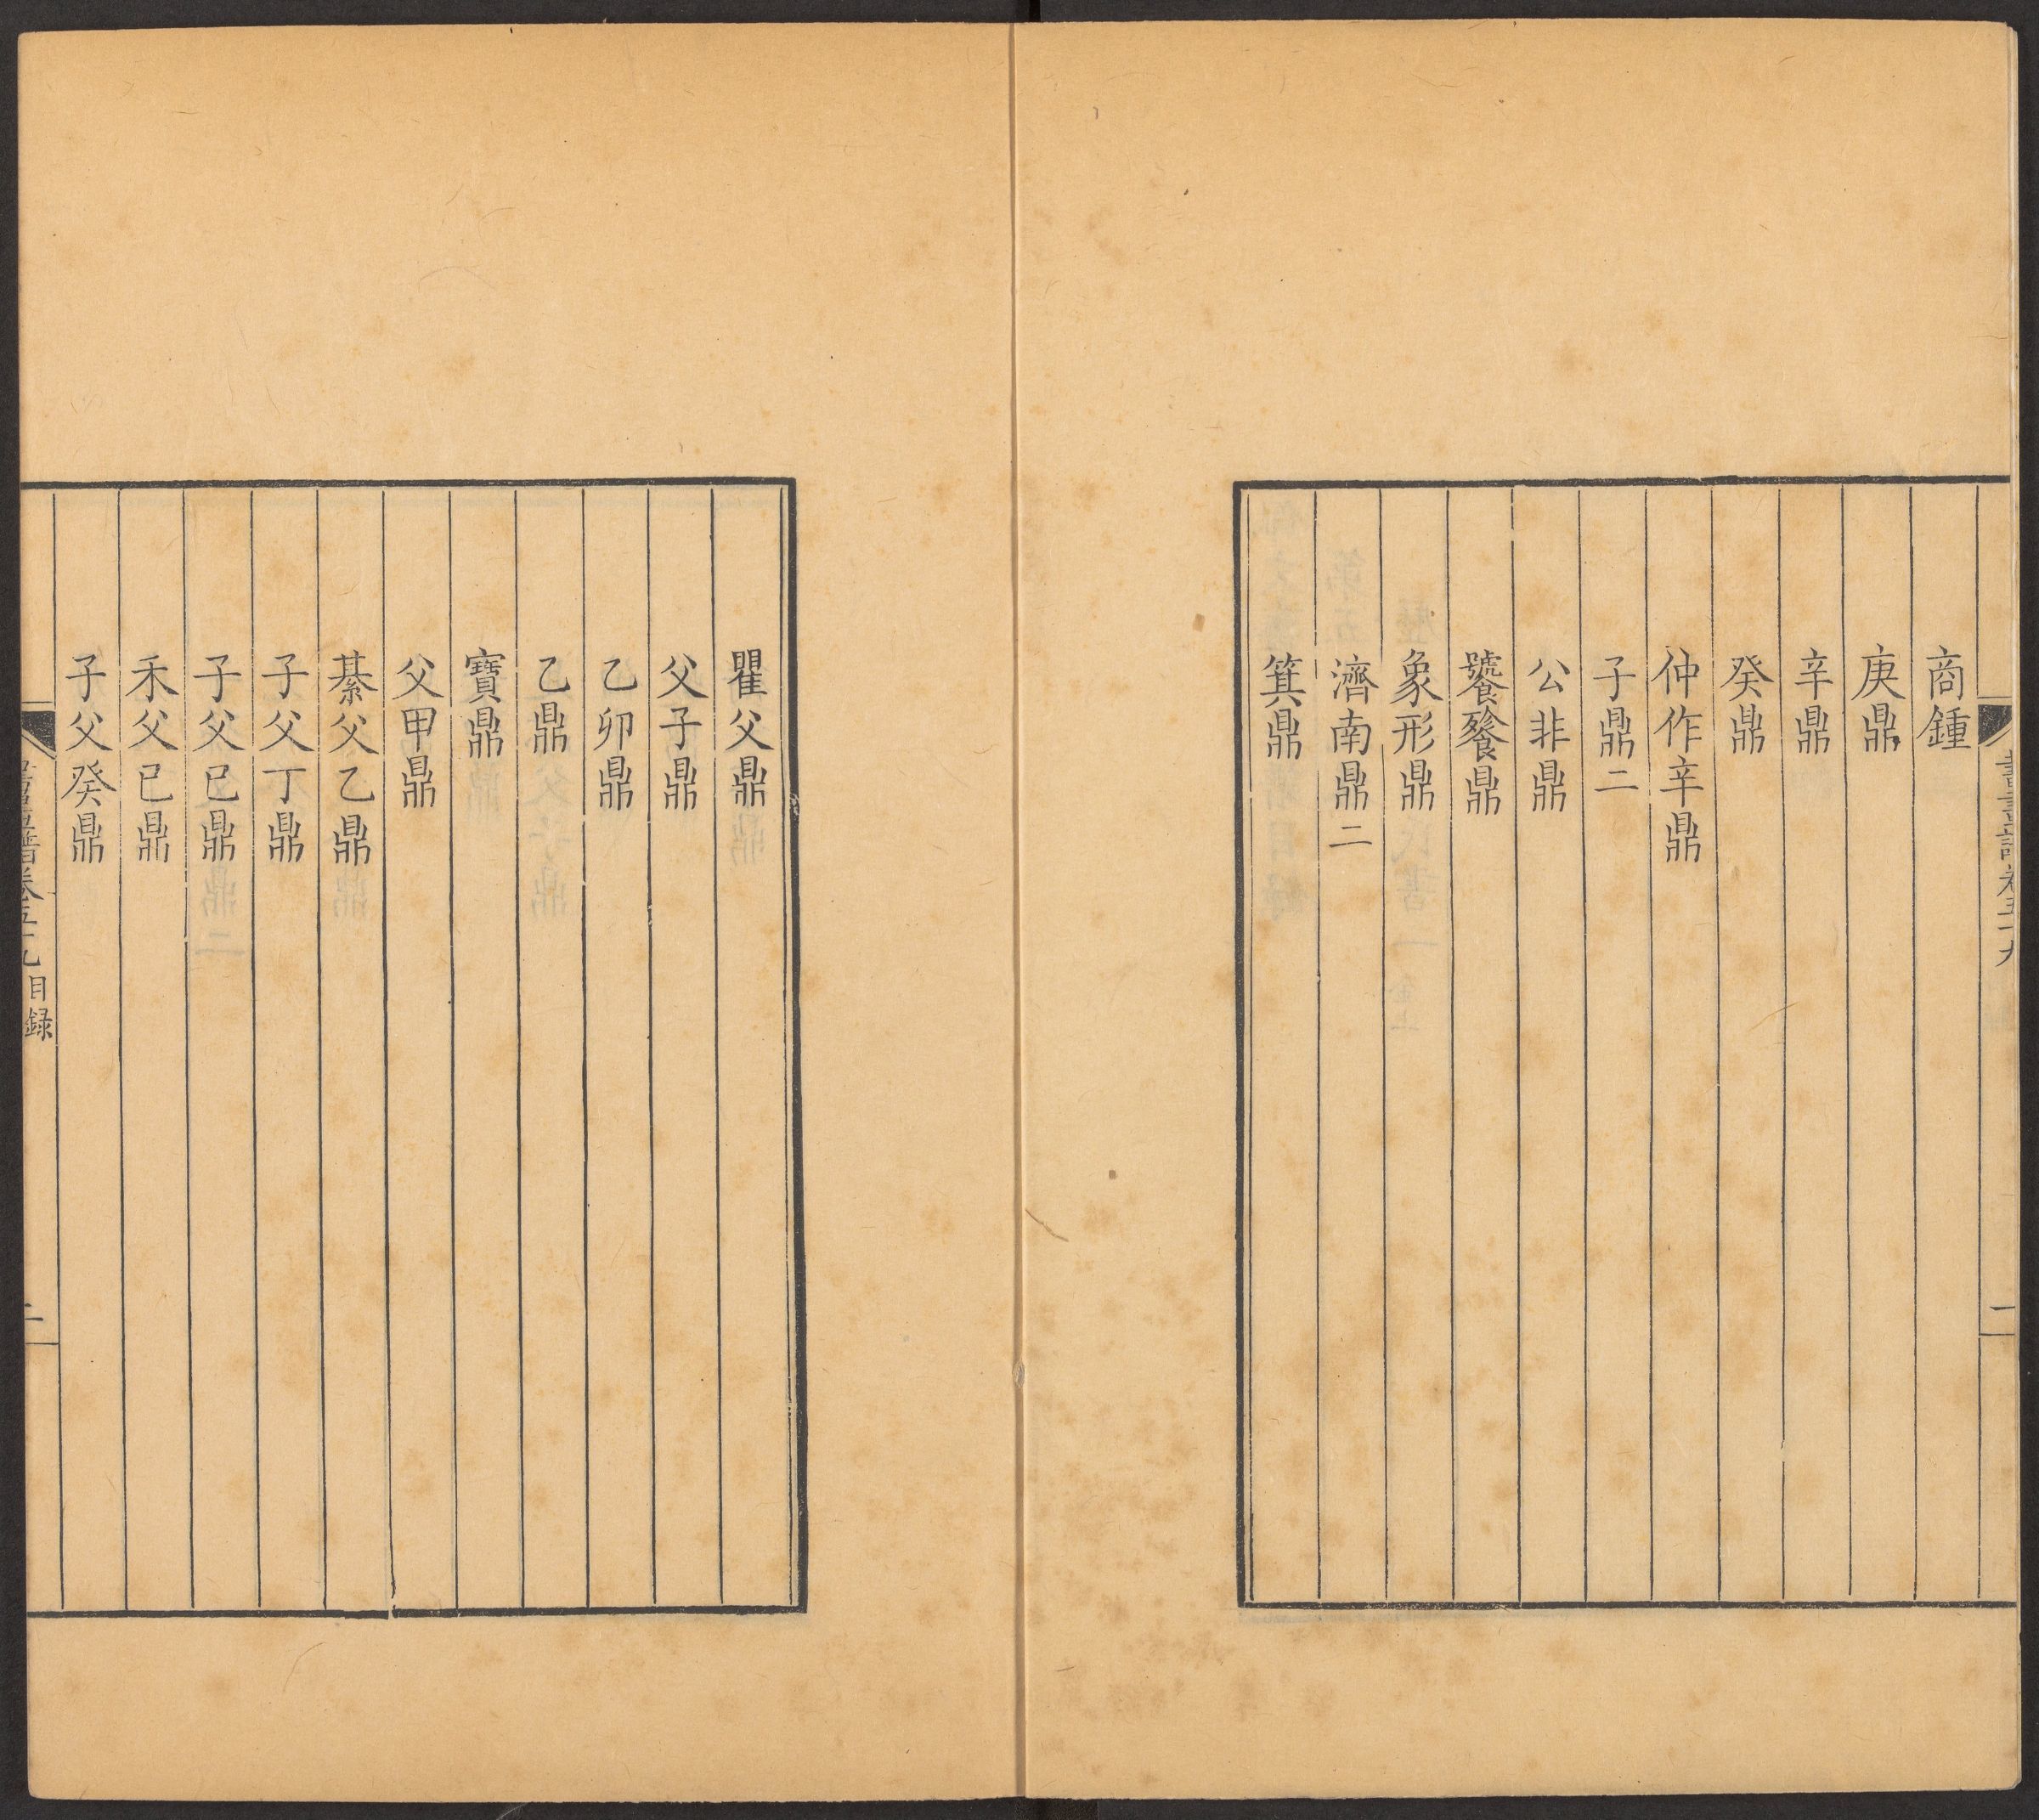 商鍾
庚鼎
辛鼎
癸鼎
仲作辛鼎
子鼎二
公非鼎
饕餮鼎
象形鼎
濟南鼎二
箕鼎
瞿父鼎
父子鼎
乙卯鼎
乙鼎
寶鼎
父甲鼎
綦父乙鼎
子父丁鼎
子父巳鼎
禾父巳鼎
子父癸鼎
書畫譜卷五十九目録